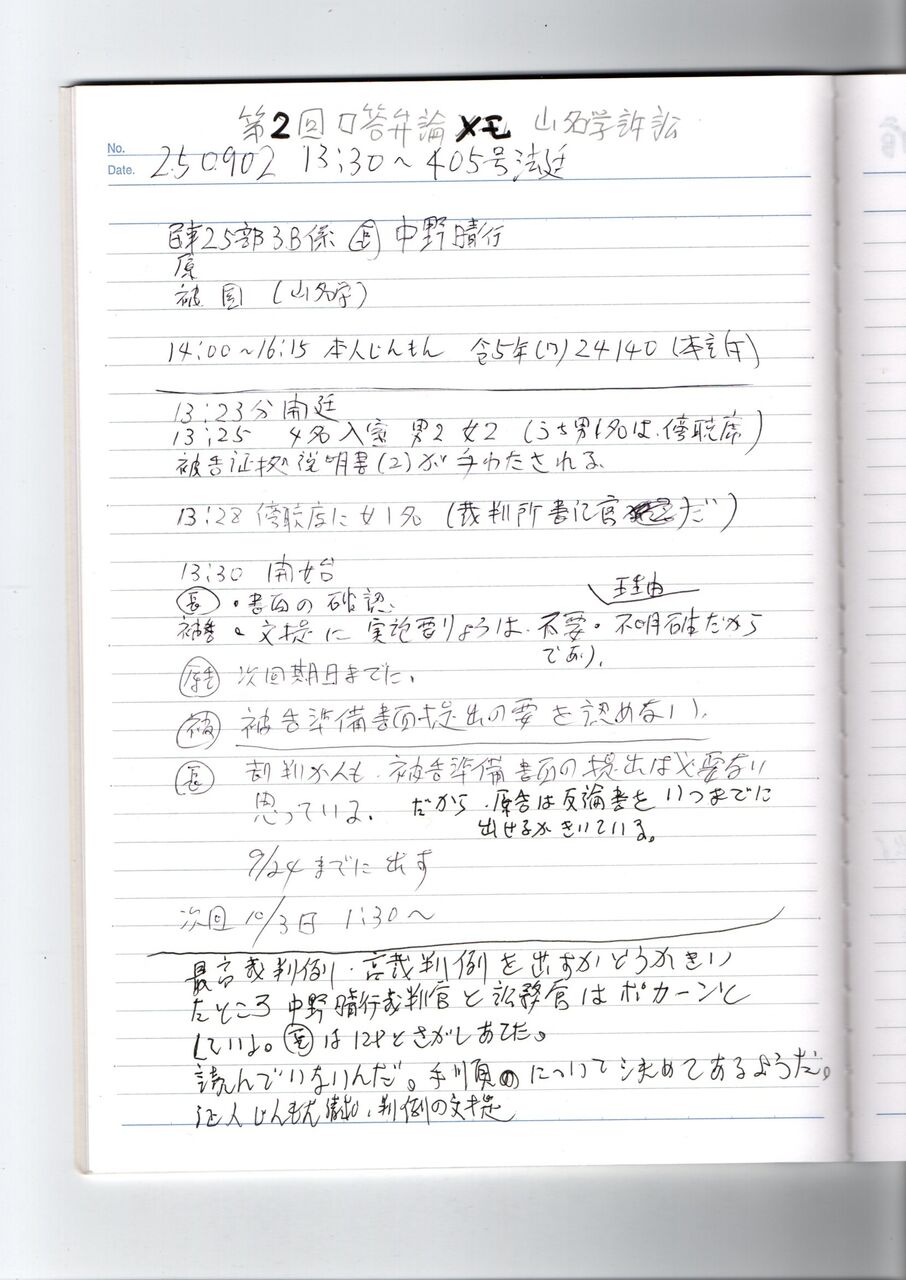 第2回口答弁論メモ 山名学訴訟
No.
Date. 250902 13:30～405号法廷
民事25部3B係 長 中野晴行
原
被 国 (山名学)
14:00～16:15 本人じんもん 令5年(ワ)24140 (本訴
13:23分 開廷
13:25 4名入室 男2 女2 (うち男1名は、傍聴席)
被告証拠説明書(2)が手わたされる、
13:28 傍聴席に女1名 (裁判所書記官 だ)
13:30 開始
理由
長 ・書面の確認、
被告 文提に 実施要りょうは、不要・不明確だから
であり、
原告 次回期日までに、
被 被告準備書面提出の要を認めない、
長 も、被告準備書面の提出は必要ない
思っている。だから、原告は反論書をいつまでに
出せるかきいている。
9/24までに出す
次回10/3日 1:30～
最高裁判例・高裁判例を出すかどうかきい
たところ 中野晴行裁判官と訟務官はポカーンと
している。長は とさがしあてた。
読んでいないんだ。手順 について決めてあるようだ。
証人じんもん 判例の文提